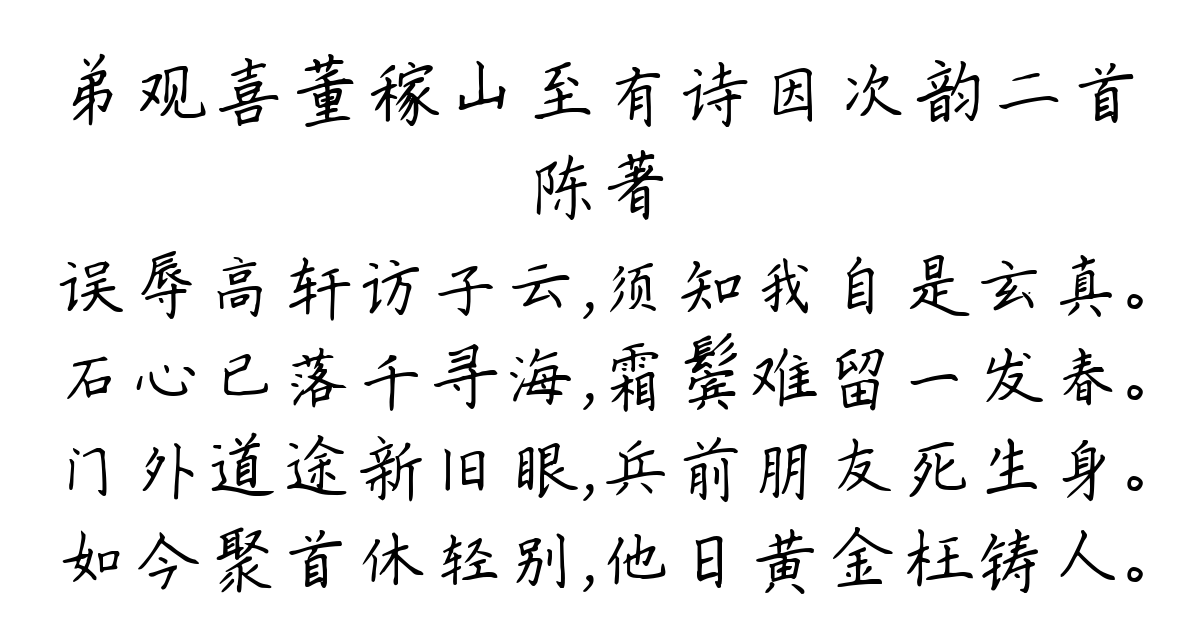 弟观喜董稼山至有诗因次韵二首
陈著
误辱高轩访子云,须知我自是玄真。
石心已落千寻海,霜鬓难留一发春。
门外道途新旧眼,兵前朋友死生身。
如今聚首休轻别,他日黄金枉铸人。